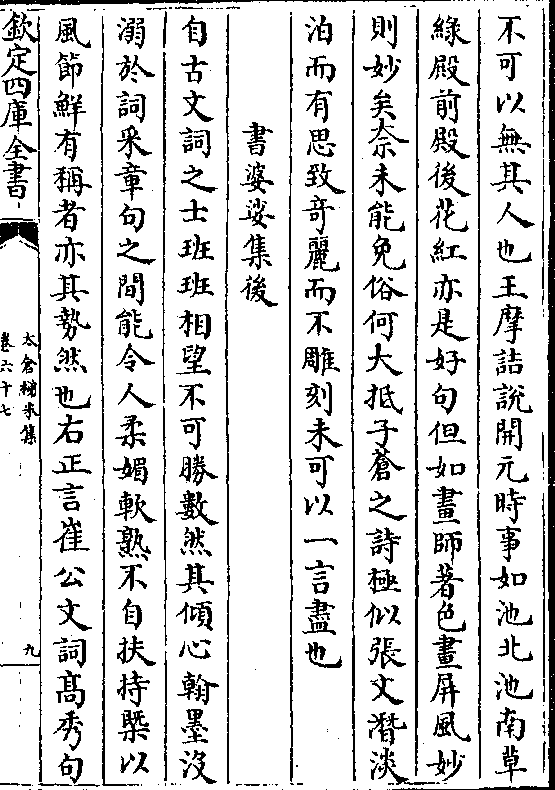 不可以無其人也王摩詰說開元時事如池北池南草
綠殿前殿後花紅亦是好句但如畫師著色畫屏風妙
則妙矣奈未能免俗何大抵子蒼之詩極似張文潛淡
泊而有思致竒麗而不雕刻未可以一言盡也
書婆娑集後
自古文詞之士班班相望不可勝數然其傾心翰墨沒
溺於詞采章句之間能令人柔媚軟熟不自扶持槩以
風節鮮有稱者亦其勢然也右正言崔公文詞髙秀句
欽定四庫全書
太倉稊米集
卷六十七
九